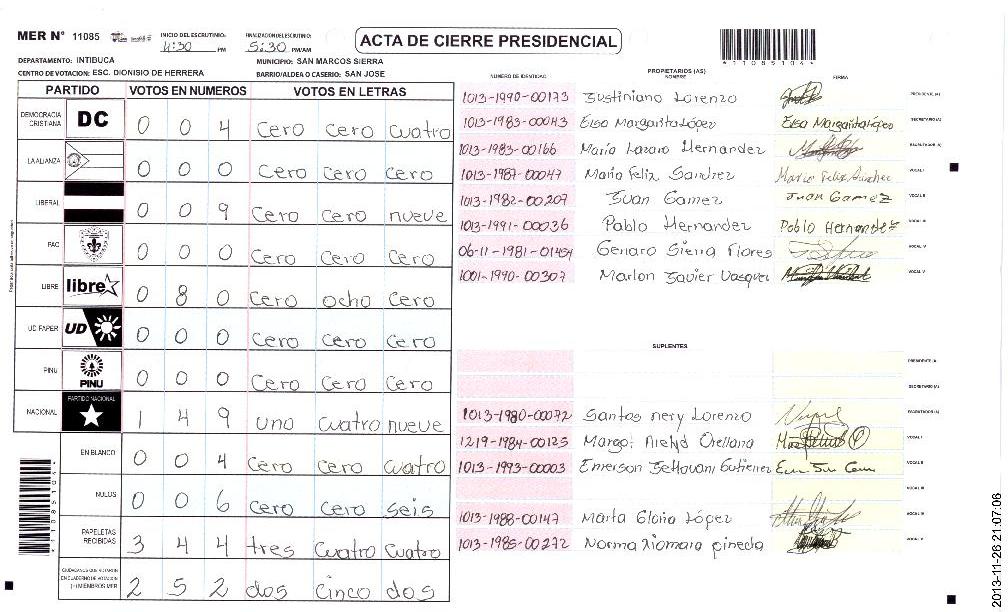 MER Nº 11085 INICIO DEL ESCRUTINIO: 4:30 PM FINALIZACION DEL ESCRUTINIO: 5:30 PM/AM ACTA DE CIERRE PRESIDENCIAL
DEPARTAMENTO: INTIBUCA MUNICIPIO: SAN MARCOS SIERRA
CENTRO DE VOTACION: ESC. DIONISIO DE HERRERA BARRIO/ALDEA O CASERIO: SAN JOSE
PARTIDO VOTOS EN NUMEROS VOTOS EN LETRAS
DEMOCRACIA CRISTIANA DC 0 0 4 cero cero cuatro
LA ALIANZA 0 0 0 cero cero cero
LIBERAL 0 0 9 cero cero nueve
PAC 0 0 0 cero cero cero
LIBRE libre 0 8 0 cero ocho cero
UD FAPER UD 0 0 0 cero cero cero
PINU PINU 0 0 0 cero cero cero
NACIONAL PARTIDO NACIONAL 1 4 9 uno cuatro nueve
EN BLANCO 0 0 4 cero cero cuatro
NULOS 0 0 6 cero cero seis
PAPELETAS RECIBIDAS 3 4 4 tres cuatro cuatro
CIUDADANOS QUE VOTARON EN CUADERNO DE VOTACION (+) MIEMBROS MER 2 5 2 dos cinco dos
NUMERO DE IDENTIDAD PROPIETARIOS (AS) NOMBRE FIRMA
1013-1990-00173 Justiniano Lorenzo PRESIDENTE (A)
1013-1983-00043 Elsa Margarita López Elsa Margarita López SECRETARIO (A)
1013-1983-00166 Maria Lazaro Hernandez ESCRUTADOR (A)
1013-1987-00047 Maria Feliz Sanchez Maria Feliz Sanchez VOCAL I
1013-1982-00207 Juan Gamez Juan Gamez VOCAL II
1013-1991-00036 Pablo Hernandez Pablo Hernandez VOCAL III
06-11-1981-01454 Genaro Sierra Flores VOCAL IV
1001-1990-00307 Marlon Javier Vasquez VOCAL V
SUPLENTES
PRESIDENTE (A)
SECRETARIO (A)
1013-1980-00072 Santos nery Lorenzo ESCRUTADOR (A)
1219-1984-00125 Orellana VOCAL I
1013-1993-00003 Emerson Gutierrez VOCAL II
VOCAL III
1013-1988-00147 Marta Gloria López VOCAL IV
1013-1985-00272 Norma Xiomara pineda VOCAL V
11085104
2013-11-26 21:07:06